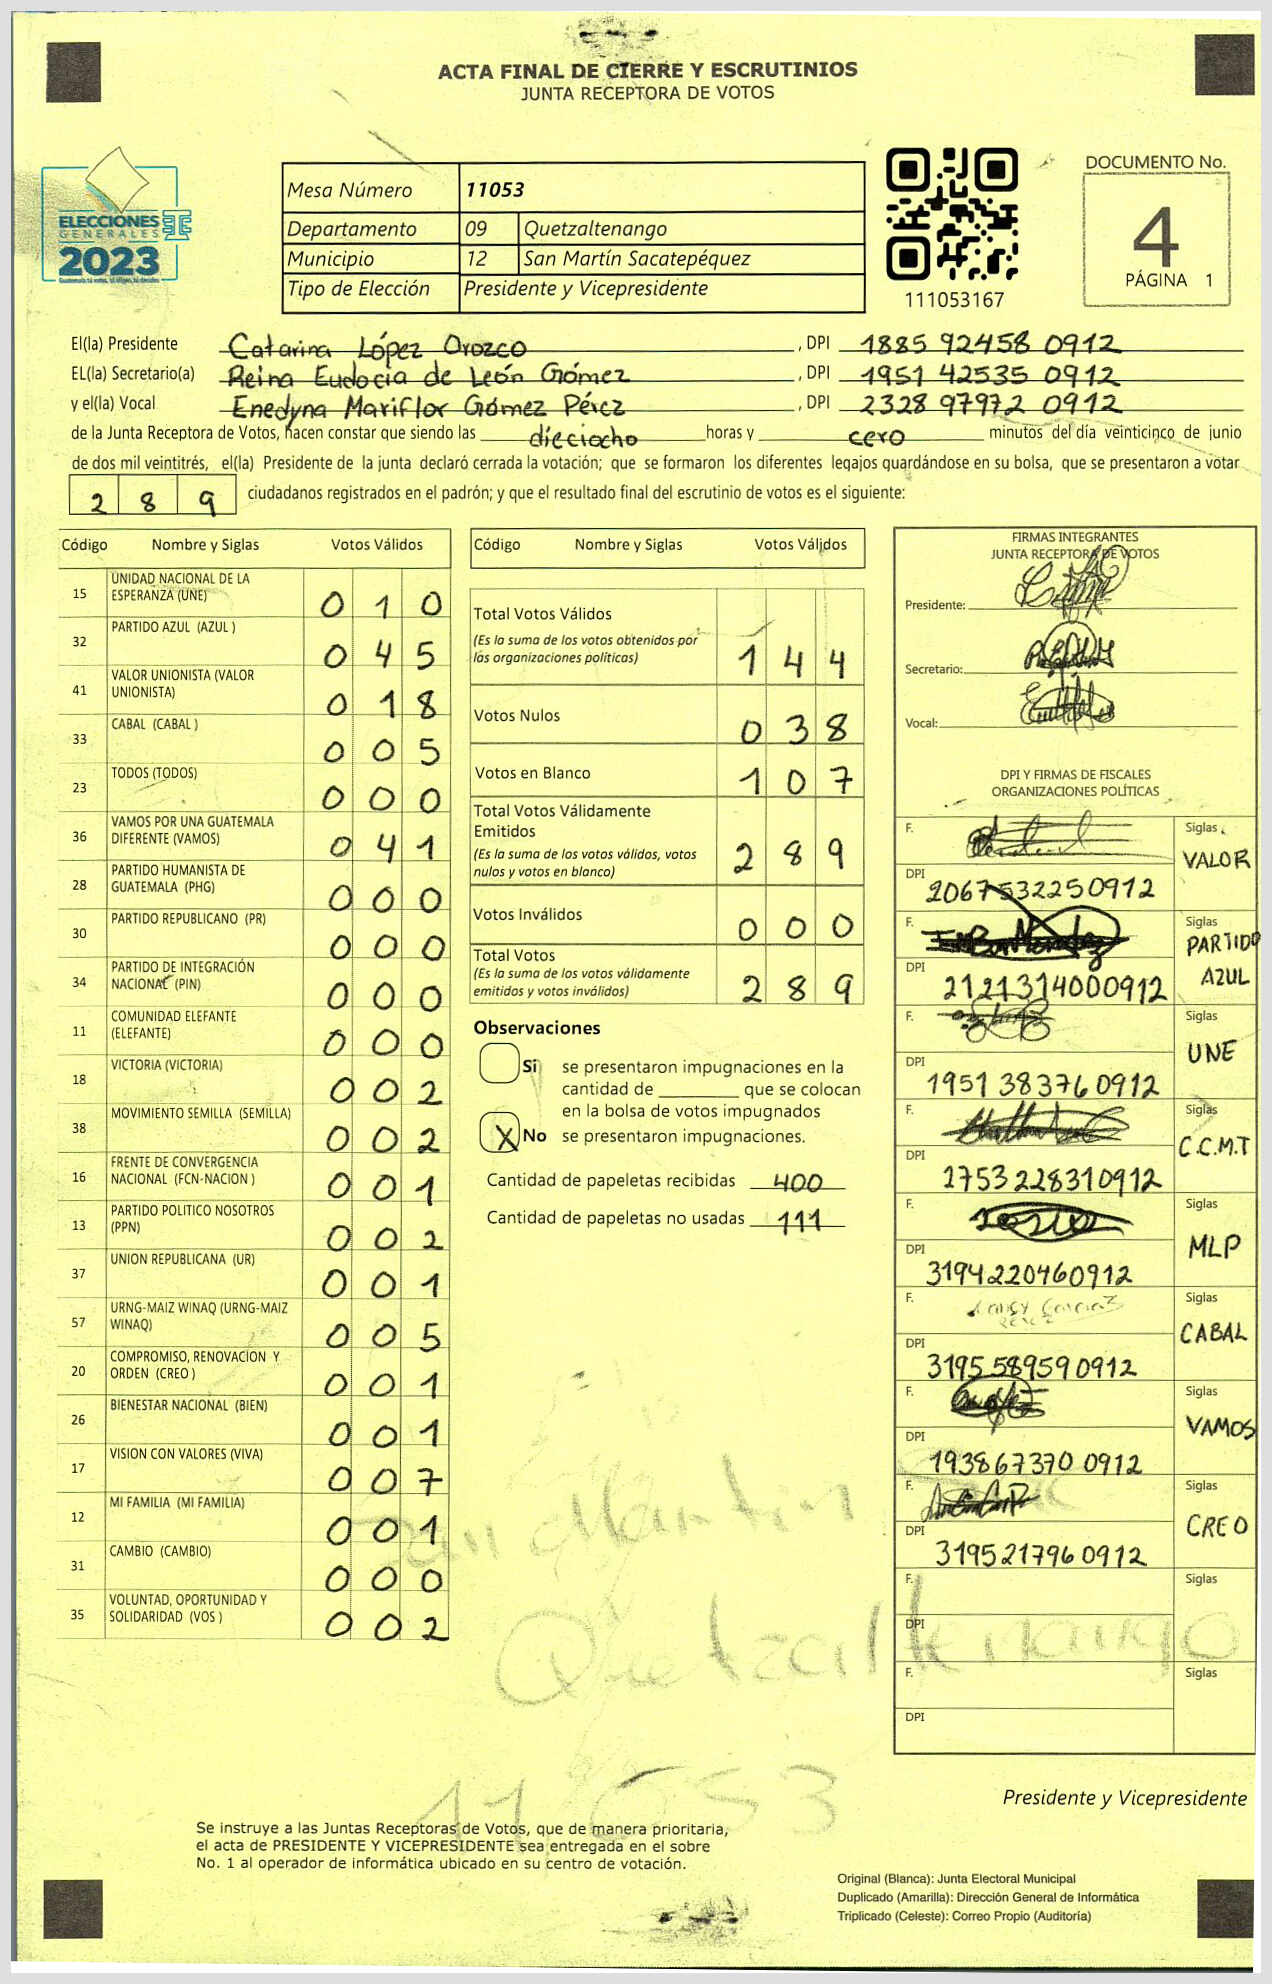 ACTA FINAL DE CIERRE Y ESCRUTINIOS
JUNTA RECEPTORA DE VOTOS
ELECCIONES
GENERALES
2023
Mesa Número 11053
Departamento 09 Quetzaltenango
Municipio 12 San Martín Sacatepéquez
Tipo de Elección Presidente y Vicepresidente
111053167
DOCUMENTO No.
4
PÁGINA 1
El(la) Presidente Catarina López Orozco, DPI 1885 92458 0912
EL(la) Secretario(a) Reina Eudocia de León Gómez, DPI 1951 42535 0912
y el(la) Vocal Enedyna Mariflor Gómez Pérez, DPI 2328 97972 0912
de la Junta Receptora de Votos, hacen constar que siendo las dieciocho horas y cero minutos del día veinticinco de junio
de dos mil veintitrés, el(la) Presidente de la junta declaró cerrada la votación; que se formaron los diferentes legajos guardándose en su bolsa, que se presentaron a votar
289 ciudadanos registrados en el padrón; y que el resultado final del escrutinio de votos es el siguiente:
Código Nombre y Siglas Votos Válidos
15 UNIDAD NACIONAL DE LA ESPERANZA (UNE) 010
32 PARTIDO AZUL (AZUL ) 045
41 VALOR UNIONISTA (VALOR UNIONISTA) 018
33 CABAL (CABAL ) 005
23 TODOS (TODOS) 000
36 VAMOS POR UNA GUATEMALA DIFERENTE (VAMOS) 041
28 PARTIDO HUMANISTA DE GUATEMALA (PHG) 000
30 PARTIDO REPUBLICANO (PR) 000
34 PARTIDO DE INTEGRACIÓN NACIONAL (PIN) 000
11 COMUNIDAD ELEFANTE (ELEFANTE) 000
18 VICTORIA (VICTORIA) 002
38 MOVIMIENTO SEMILLA (SEMILLA) 002
16 FRENTE DE CONVERGENCIA NACIONAL (FCN-NACION ) 001
13 PARTIDO POLITICO NOSOTROS (PPN) 002
37 UNION REPUBLICANA (UR) 001
57 URNG-MAIZ WINAQ (URNG-MAIZ WINAQ) 005
20 COMPROMISO, RENOVACION Y ORDEN (CREO ) 001
26 BIENESTAR NACIONAL (BIEN) 001
17 VISION CON VALORES (VIVA) 007
12 MI FAMILIA (MI FAMILIA) 001
31 CAMBIO (CAMBIO) 000
35 VOLUNTAD, OPORTUNIDAD Y SOLIDARIDAD (VOS ) 002
Código Nombre y Siglas Votos Válidos
Total Votos Válidos 144
(Es la suma de los votos obtenidos por las organizaciones políticas)
Votos Nulos 038
Votos en Blanco 107
Total Votos Válidamente Emitidos 289
(Es la suma de los votos válidos, votos nulos y votos en blanco)
Votos Inválidos 000
Total Votos 289
(Es la suma de los votos válidamente emitidos y votos inválidos)
Observaciones
Si se presentaron impugnaciones en la
cantidad de ________ que se colocan
en la bolsa de votos impugnados
X No se presentaron impugnaciones.
Cantidad de papeletas recibidas 400
Cantidad de papeletas no usadas 111
FIRMAS INTEGRANTES
JUNTA RECEPTORA DE VOTOS
Presidente:
Secretario:
Vocal:
DPI Y FIRMAS DE FISCALES
ORGANIZACIONES POLÍTICAS
F. Siglas VALOR
DPI 2067532250912
F. Siglas PARTIDO AZUL
DPI 2121314000912
F. Siglas UNE
DPI 1951 38376 0912
F. Siglas C.C.M.T
DPI 2753228310912
F. Siglas MLP
DPI 3194220460912
F. Siglas CABAL
DPI 3195589590912
F. Siglas VAMOS
DPI 193867370 0912
F. Siglas CREO
DPI 3195217960912
F. Siglas
DPI
F. Siglas
DPI
San Martin Sac
Quetzaltenango
11053
Presidente y Vicepresidente
Se instruye a las Juntas Receptoras de Votos, que de manera prioritaria,
el acta de PRESIDENTE Y VICEPRESIDENTE sea entregada en el sobre
No. 1 al operador de informática ubicado en su centro de votación.
Original (Blanca): Junta Electoral Municipal
Duplicado (Amarilla): Dirección General de Informática
Triplicado (Celeste): Correo Propio (Auditoría)